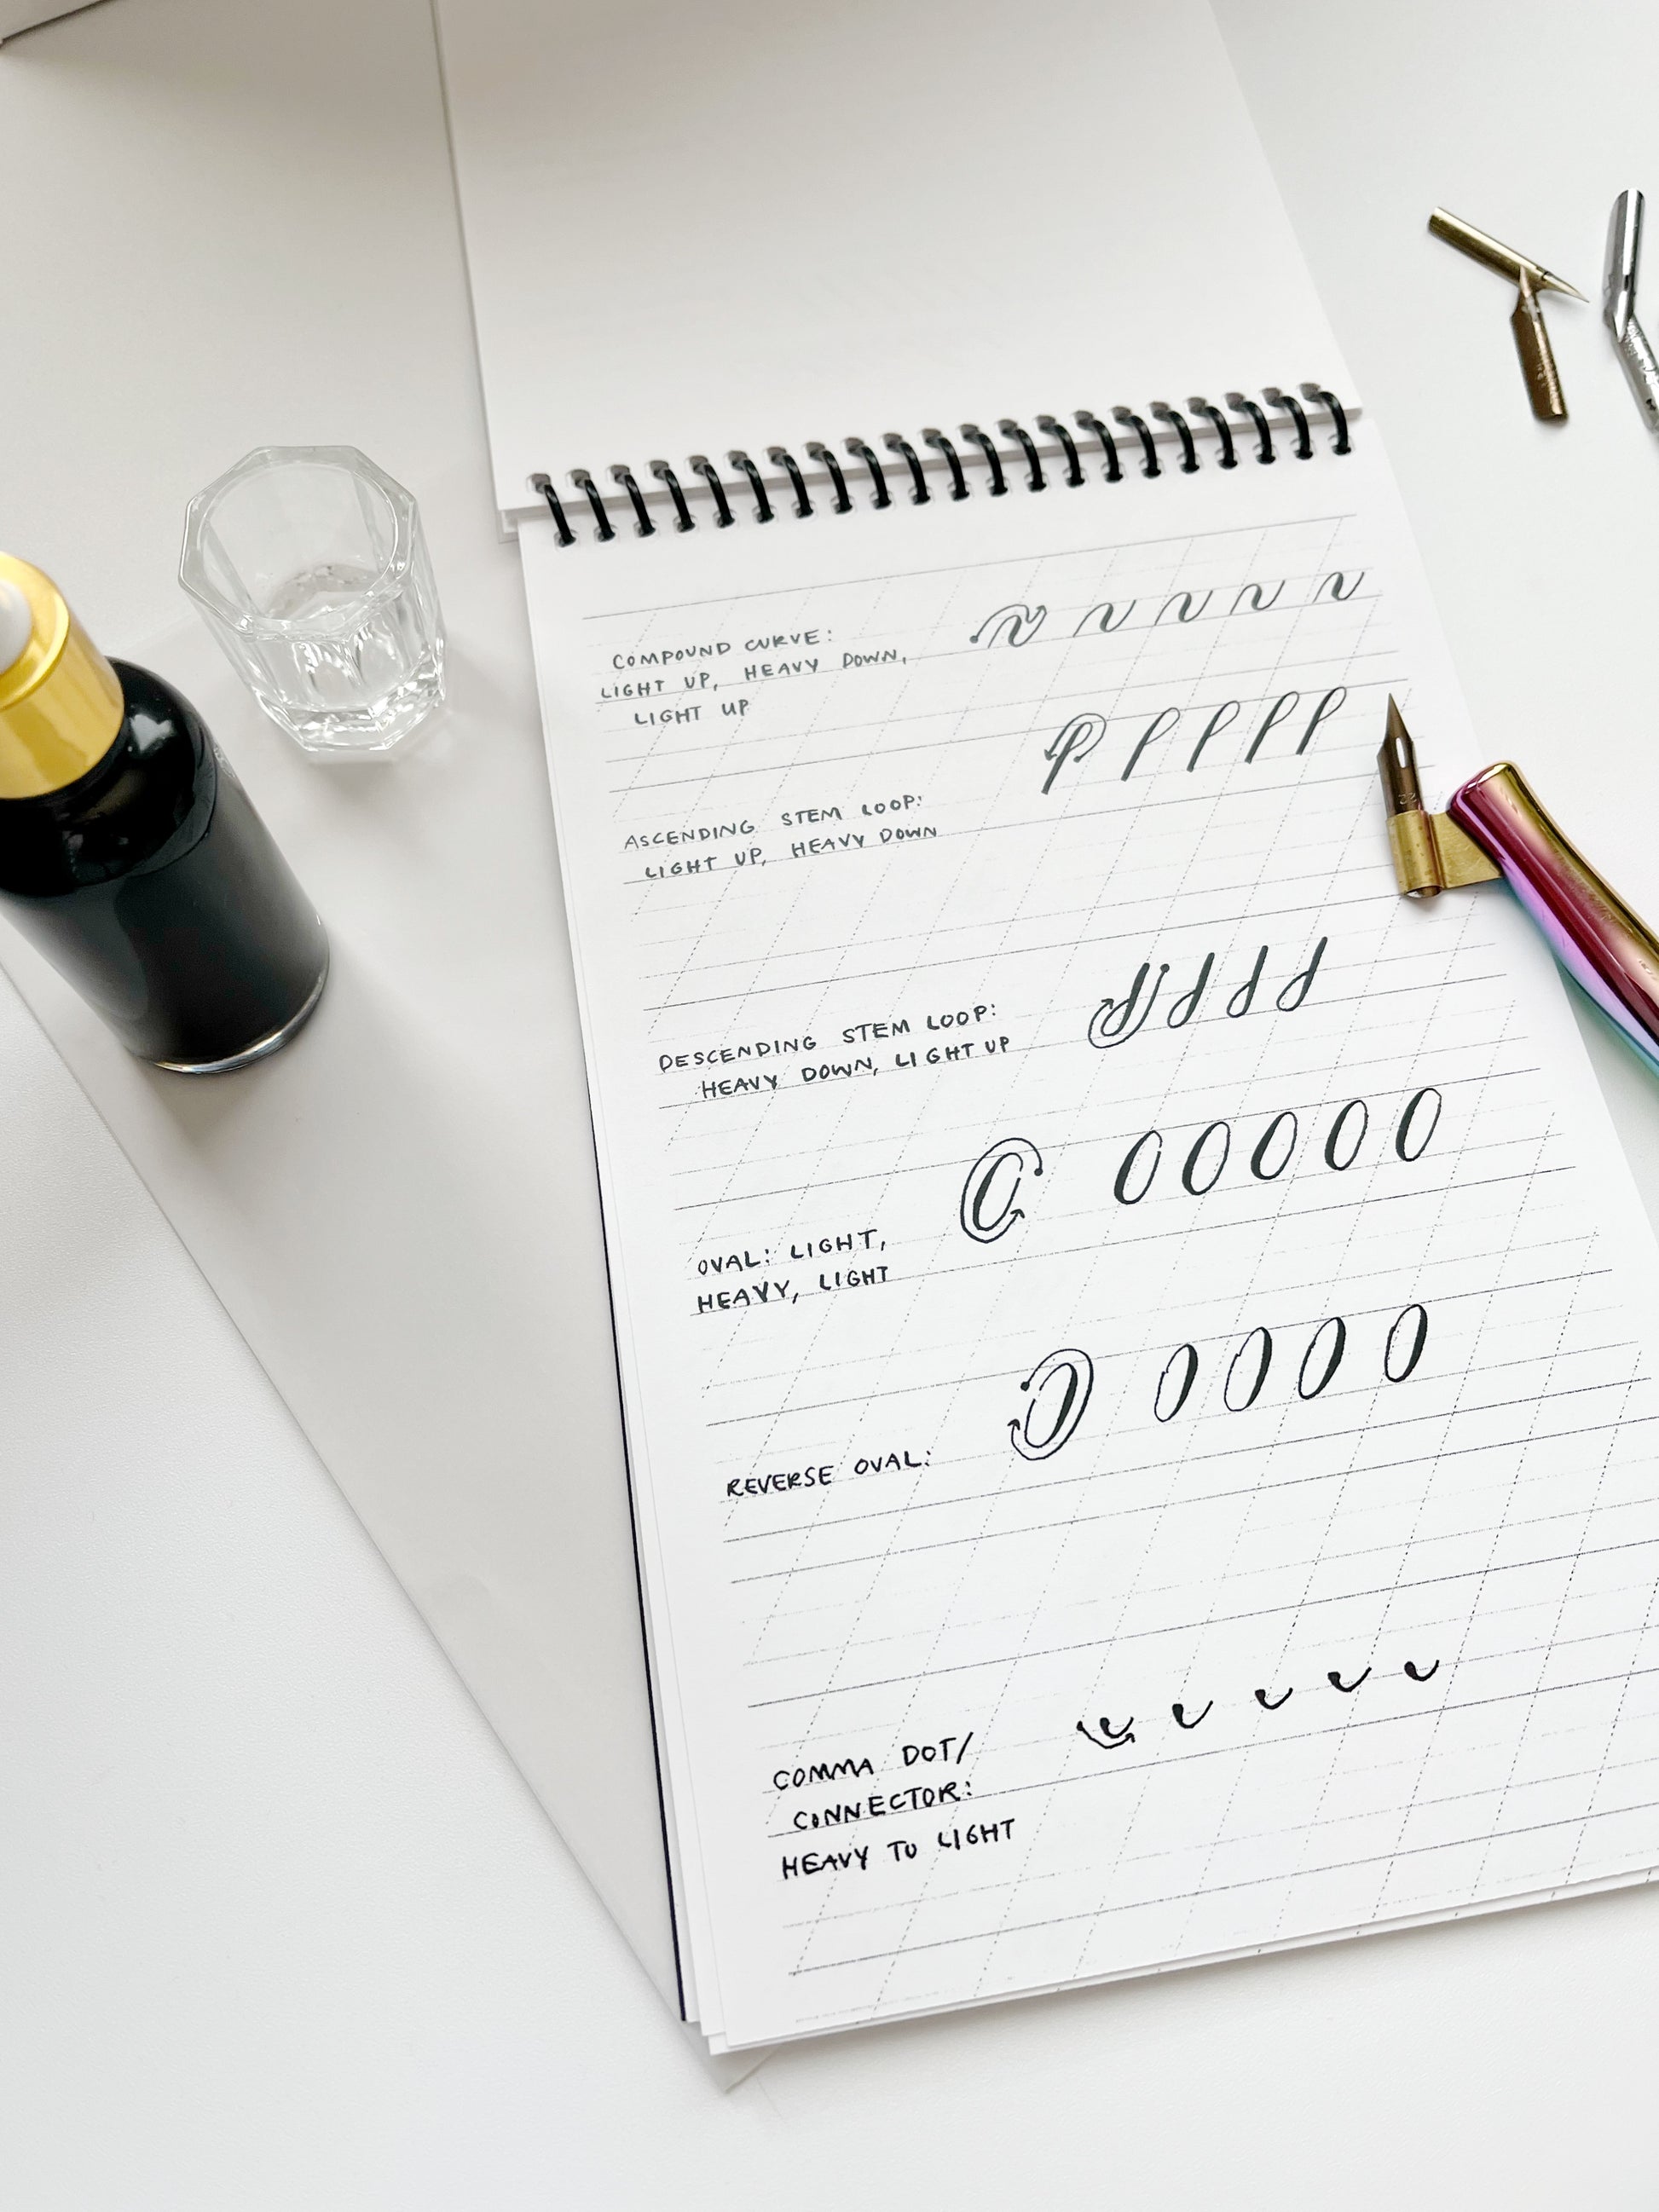 COMPOUND CURVE:
LIGHT UP, HEAVY DOWN,
LIGHT UP
ASCENDING STEM LOOP:
LIGHT UP, HEAVY DOWN
DESCENDING STEM LOOP:
HEAVY DOWN, LIGHT UP
OVAL: LIGHT,
HEAVY, LIGHT
REVERSE OVAL:
COMMA DOT/
CONNECTOR:
HEAVY TO LIGHT